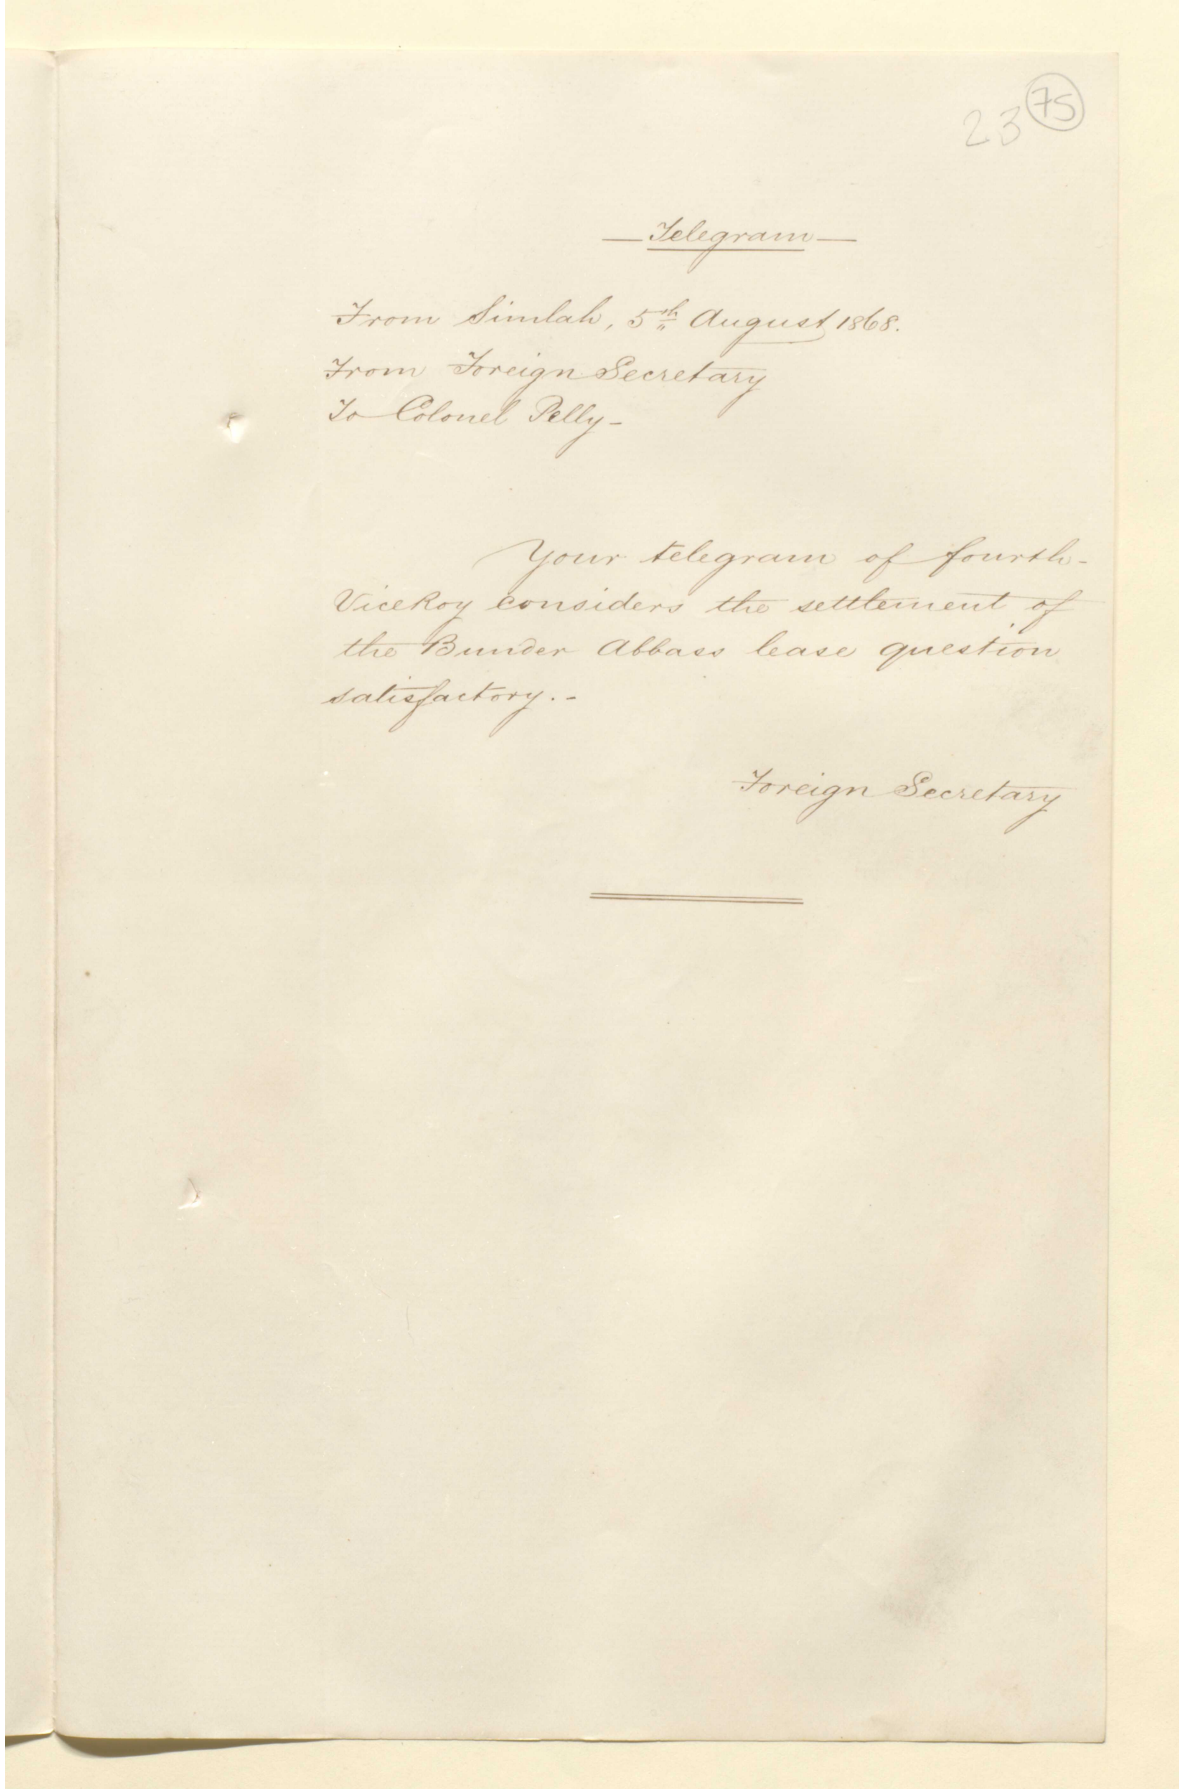 23 75
— Telegram —
From Simlah, 5th August 1868.
From Foreign Secretary
To Colonel Pelly -
Your telegram of fourth -
Viceroy considers the settlement of
the Bunder Abbass lease question
satisfactory. -
Foreign Secretary